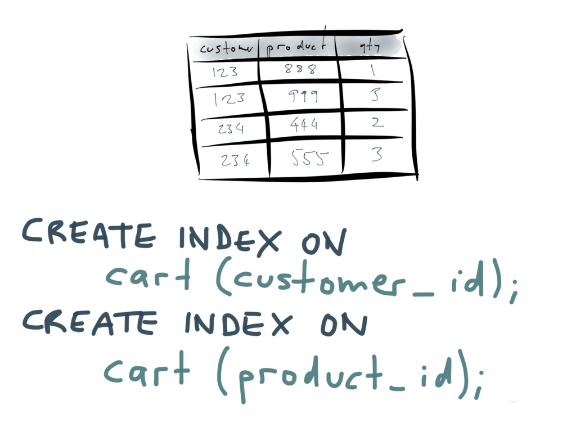 customer product qty
123 888 1
123 999 3
234 444 2
234 555 3
CREATE INDEX ON
cart (customer_id);
CREATE INDEX ON
cart (product_id);